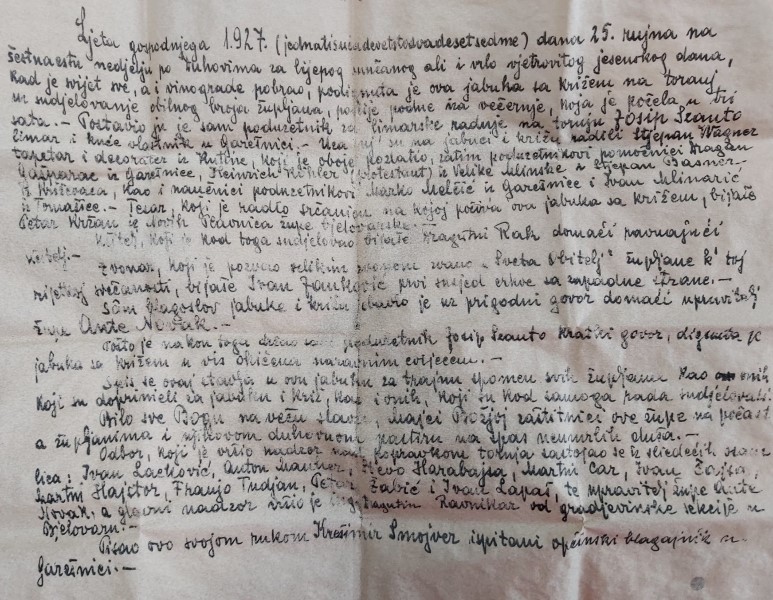 Ljeta gospodnjega 1927. (jednatisućadevetstodvadesetsedme) dana 25. rujna na
šestnaestu nedjelju po Duhovima za lijepog sunčanog ali i vrlo vjetrovitog jesenskog dana,
kad je svijet sve, a i vinograde pobrao, podignuta je ova jabuka sa križem na toranj
uz sudjelovanje obilnog broja župljana, poslije podne na večernje, koja je počela u tri
sata. — Postavio ju je sam poduzetnik za limarske radnje na tornju Josip Szanto
limar i kuće vlasnik u Garešnici. — Uza nj su na jabuci i križu radili Stjepan Wagner
tapetar i decorater iz Kutine, koji je oboje pozlatio, zatim poduzetnikovi pomoćnici Dragan
Gašparac iz Garešnice, Heinrich (protestant) iz Velike Mlinske i Stjepan Basner
iz kao i naučnici poduzetnikovi Marko Melčić iz Garešnice i Ivan Mlinarić
iz Tomašice. — Tesar, koji je radio na kojoj počiva ova jabuka sa križem, bijaše
Petar Kržan iz Novih Plavnica župe bjelovarske.
koji je kod toga sudjelovao bijaše Dragutin Rak domaći ravnajući
učitelj. —
Zvonar, koji je pozvao velikim zvonom zvano „Sveta Obitelj" župljane k toj
rijetkoj svečanosti, bijaše Ivan Janković prvi susjed crkve sa zapadne strane. —
Sâm blagoslov jabuke i križa obavio je uz prigodni govor domaći upravitelj
župe Ante Novak. —
Pošto je nakon toga držao poduzetnik Josip Szanto kratki govor, dignuta je
jabuka sa križem u vis okićena naravnim cvijećem. —
Spis se ovaj stavlja u ovu jabuku za trajnu spomen svih župljana kao onih
koji su doprinieli za jabuku i križ, kao i onih, koji su kod samoga rada sudjelovali.
Bilo sve Bogu na veću slavu, Majci Božjoj zaštitnici ove župe na počast
a župljanima i njihovom duhovnom pastiru na spas neumrlih duša. —
Odbor, koji je vršio nadzor nad popravkom tornja sastojao se iz sliedećih osam
lica: Ivan Lacković, Anton Mauher, Stevo Harabajsa, Martin Car, Ivan
Martin Hajster, Franjo Tudjan, Petar Žabić i Ivan Lapaš, te upravitelj župe Ante
Novak. a glavni nadzor vršio je Dragutin Ravnikar od gradjevinske sekcije u
Bjelovaru. —
Pisao ovo svojom rukom Krešimir Smojver ispitani općinski blagajnik u
Garešnici. —